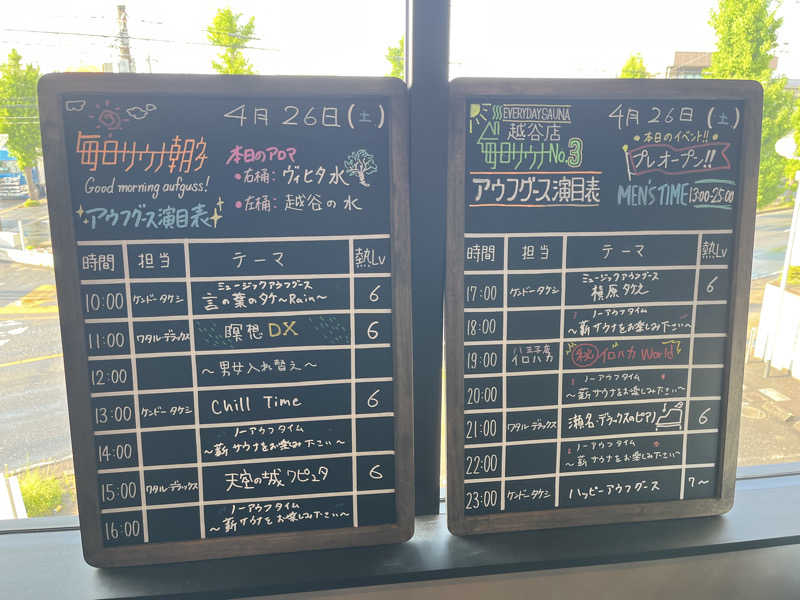 4月 26日(土)
毎日サウナ朝子
Good morning aufguss!
アウフグース演目表
本日のアロマ
・右桶: ヴィヒタ水
・左桶: 越谷の水
時間 担当 テーマ 熱Lv
10:00 ケンドータケシ ミュージックアウフグース 言の葉のタケ〜Rain〜 6
11:00 ワタル・デラックス 瞑想DX 6
12:00 〜男女入れ替え〜
13:00 ケンドータケシ Chill Time 6
14:00 ノーアウフタイム 〜薪サウナをお楽しみ下さい〜
15:00 ワタル・デラックス 天空の城ワピュタ 6
16:00 ノーアウフタイム 〜薪サウナをお楽しみ下さい〜
EVERYDAY SAUNA
越谷店
毎日サウナNo.3
アウフグース演目表
4月 26日(土)
本日のイベント!!
プレオープン!!
MEN'S TIME 13:00-25:00
時間 担当 テーマ 熱Lv
17:00 ケンドータケシ ミュージックアウフグース 槇原タケ之 6
18:00 ノーアウフタイム 〜薪サウナをお楽しみ下さい〜
19:00 八王子店 イロハカ ㊙イロハカ World
20:00 ノーアウフタイム 〜薪サウナをお楽しみ下さい〜
21:00 ワタル・デラックス 瀬名・デラックスのピアノ 6
22:00 ノーアウフタイム 〜薪サウナをお楽しみ下さい〜
23:00 ケンドータケシ ハッピーアウフグース 7〜